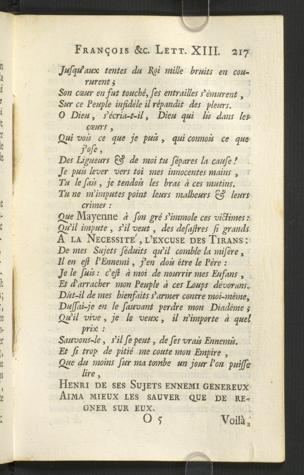 FRANÇOIS &c. LETT. XIII. 217
Jusqu'aux tentes du Roi mille bruits en cou-
rurent;
Son cœur en fut touché, ses entrailles s'émurent,
Sur ce Peuple infidèle il répandit des pleurs.
O Dieu, s'écria-t-il, Dieu qui lis dans les
cœurs,
Qui vois ce que je puis, qui connois ce que
j'ose,
Des Ligueurs & de moi tu sépares la cause!
Je puis lever vers toi mes innocentes mains,
Tu le sais, je tendois les bras à ces mutins.
Tu ne m'imputes point leurs malheurs & leurs
crimes:
Que Mayenne à son gré s'immole ces victimes:
Qu'il impute, s'il veut, des desastres si grands
A LA NECESSITE', L'EXCUSE DES TIRANS:
De mes Sujets séduits qu'il comble la misere,
Il en est l'Ennemi, j'en dois être le Père:
Je le suis: c'est à moi de nourrir mes Enfans,
Et d'arracher mon Peuple à ces Loups dévorans.
Dût-il de mes bienfaits s'armer contre moi-même,
Dussai-je en le sauvant perdre mon Diadème;
Qu'il vive, je le veux, il n'importe à quel
prix:
Sauvons-le, s'il se peut, de ses vrais Ennemis.
Et si trop de pitié me coute mon Empire,
Que du moins sur ma tombe un jour l'on puisse
lire,
HENRI DE SES SUJETS ENNEMI GENEREUX
AIMA MIEUX LES SAUVER QUE DE RE-
GNER SUR EUX.
O 5 Voilà,